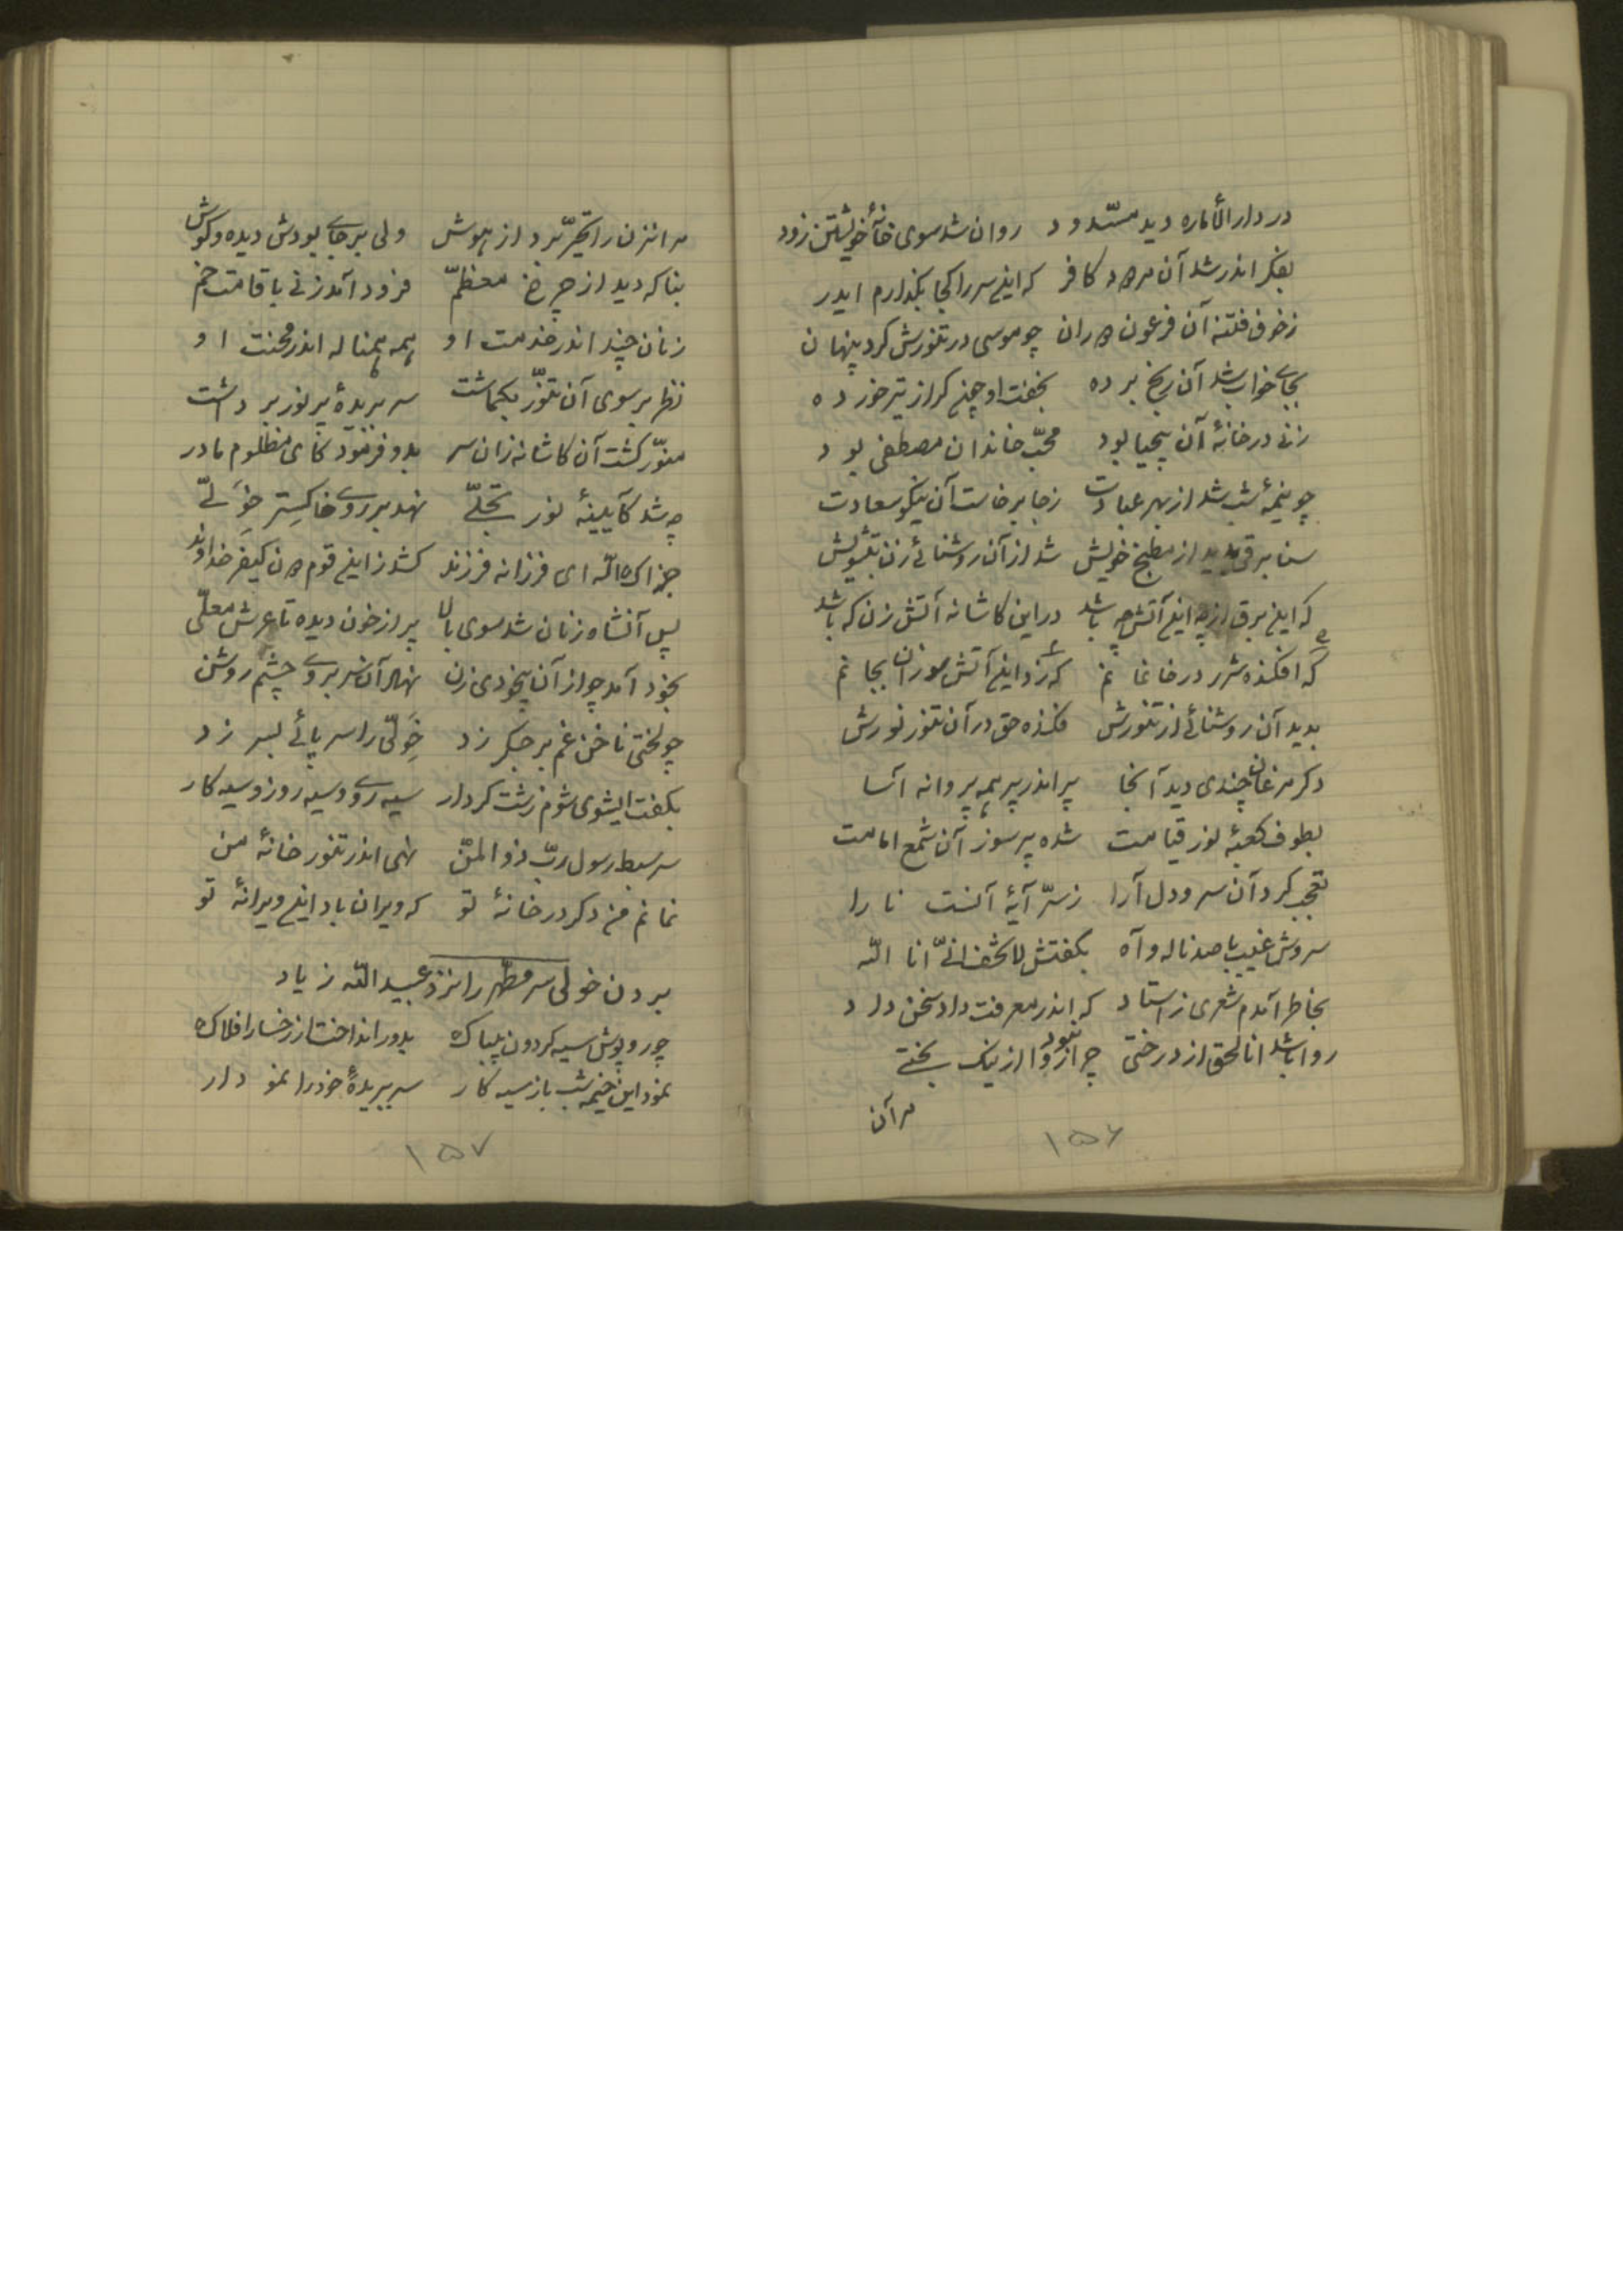 در دار الأماره دید مسّدود روان شد سوی خانهٔ خویشتن زود
بفکر اندر شد آن مرد کافر که این سر را کجا بگذارم ایدر
ز خوف فتنه آن فرعون دوران چو موسی در تنورش کرد پنهان
بجای خواب شد آن رنج برده بخفت او چون گراز تیر خورده
زنی در خانهٔ آن بیحیا بود محبّ خاندان مصطفی بود
چو نیمهٔ شب شد از بهر عبادت ز جا برخاست آن نیکو سعادت
سنا برقی بدید از مطبخ خویش شد از آن روشنائی زن بتشویش
که این برق از چه این آتش چه باشد در این کاشانه آتش زن که باشد
که افکنده شرر در خانمانم که زد این آتش سوزان بجانم
بدید آن روشنائی از تنورش فکنده حق در آن تنور نورش
دگر مرغان چندی دید آنجا پر اندر پر همه پروانه آسا
بطوف کعبهٔ نور قیامت شده پر سوز آن شمع امامت
تعجب کرد آن سرو دل آرا ز سرّ آیهٔ آنست نارا
سروش غیب با صد ناله و آه بگفتش لا تخف انّی انا الله
بخاطر آمدم شعری ز استاد که اندر معرفت داد سخن داد
روا باشد انا الحق از درختی چرا نبود روا از نیک بختی
مر آن
۱۵۶
مر انزن را تحیّر برد از هوش ولی بر جای بودش دیده و گوش
بناگه دید از چرخ معظمّ فرود آمد زنی با قامت خم
زنان چند اندر خدمت او همه همناله اندر محنت او
نظر بر سوی آن تنوّر بگماشت سر بریدهٔ پر نور برداشت
منوّر گشت آن کاشانه زان سر بدو فرمود کای مظلوم مادر
چه شد کآیینهٔ نور تجلّی نهد بر روی خاکستر خَولّی
جزاک الله ای فرزانه فرزند کشد زاین قوم دون کیفر خداوند
پس آنشاه زنان شد سوی بالا پر از خون دیده تا عرش معلّی
بخود آمد چو از آن بیخودی زن نهاد آن سر بروی چشم روشن
چو لختی ناخن غم بر جگر زد خَولّی را سر پائی بسر زد
بگفت ایشوی شوم زشت کردار سیه روی و سیه روز و سیه کار
سر سبط رسول ربّ ذو المنّ نهی اندر تنور خانهٔ من
نمانم من دگر در خانهٔ تو که ویران باد این ویرانهٔ تو
بردن خولی سر مطهّر را نزد عبید الله زیاد
چو روپوش سیه گردون بیباک بدور انداخت از رخسار افلاک
نمود این خیمه شب باز سیه کار سر ببریدهٔ خود را نمودار
۱۵۷